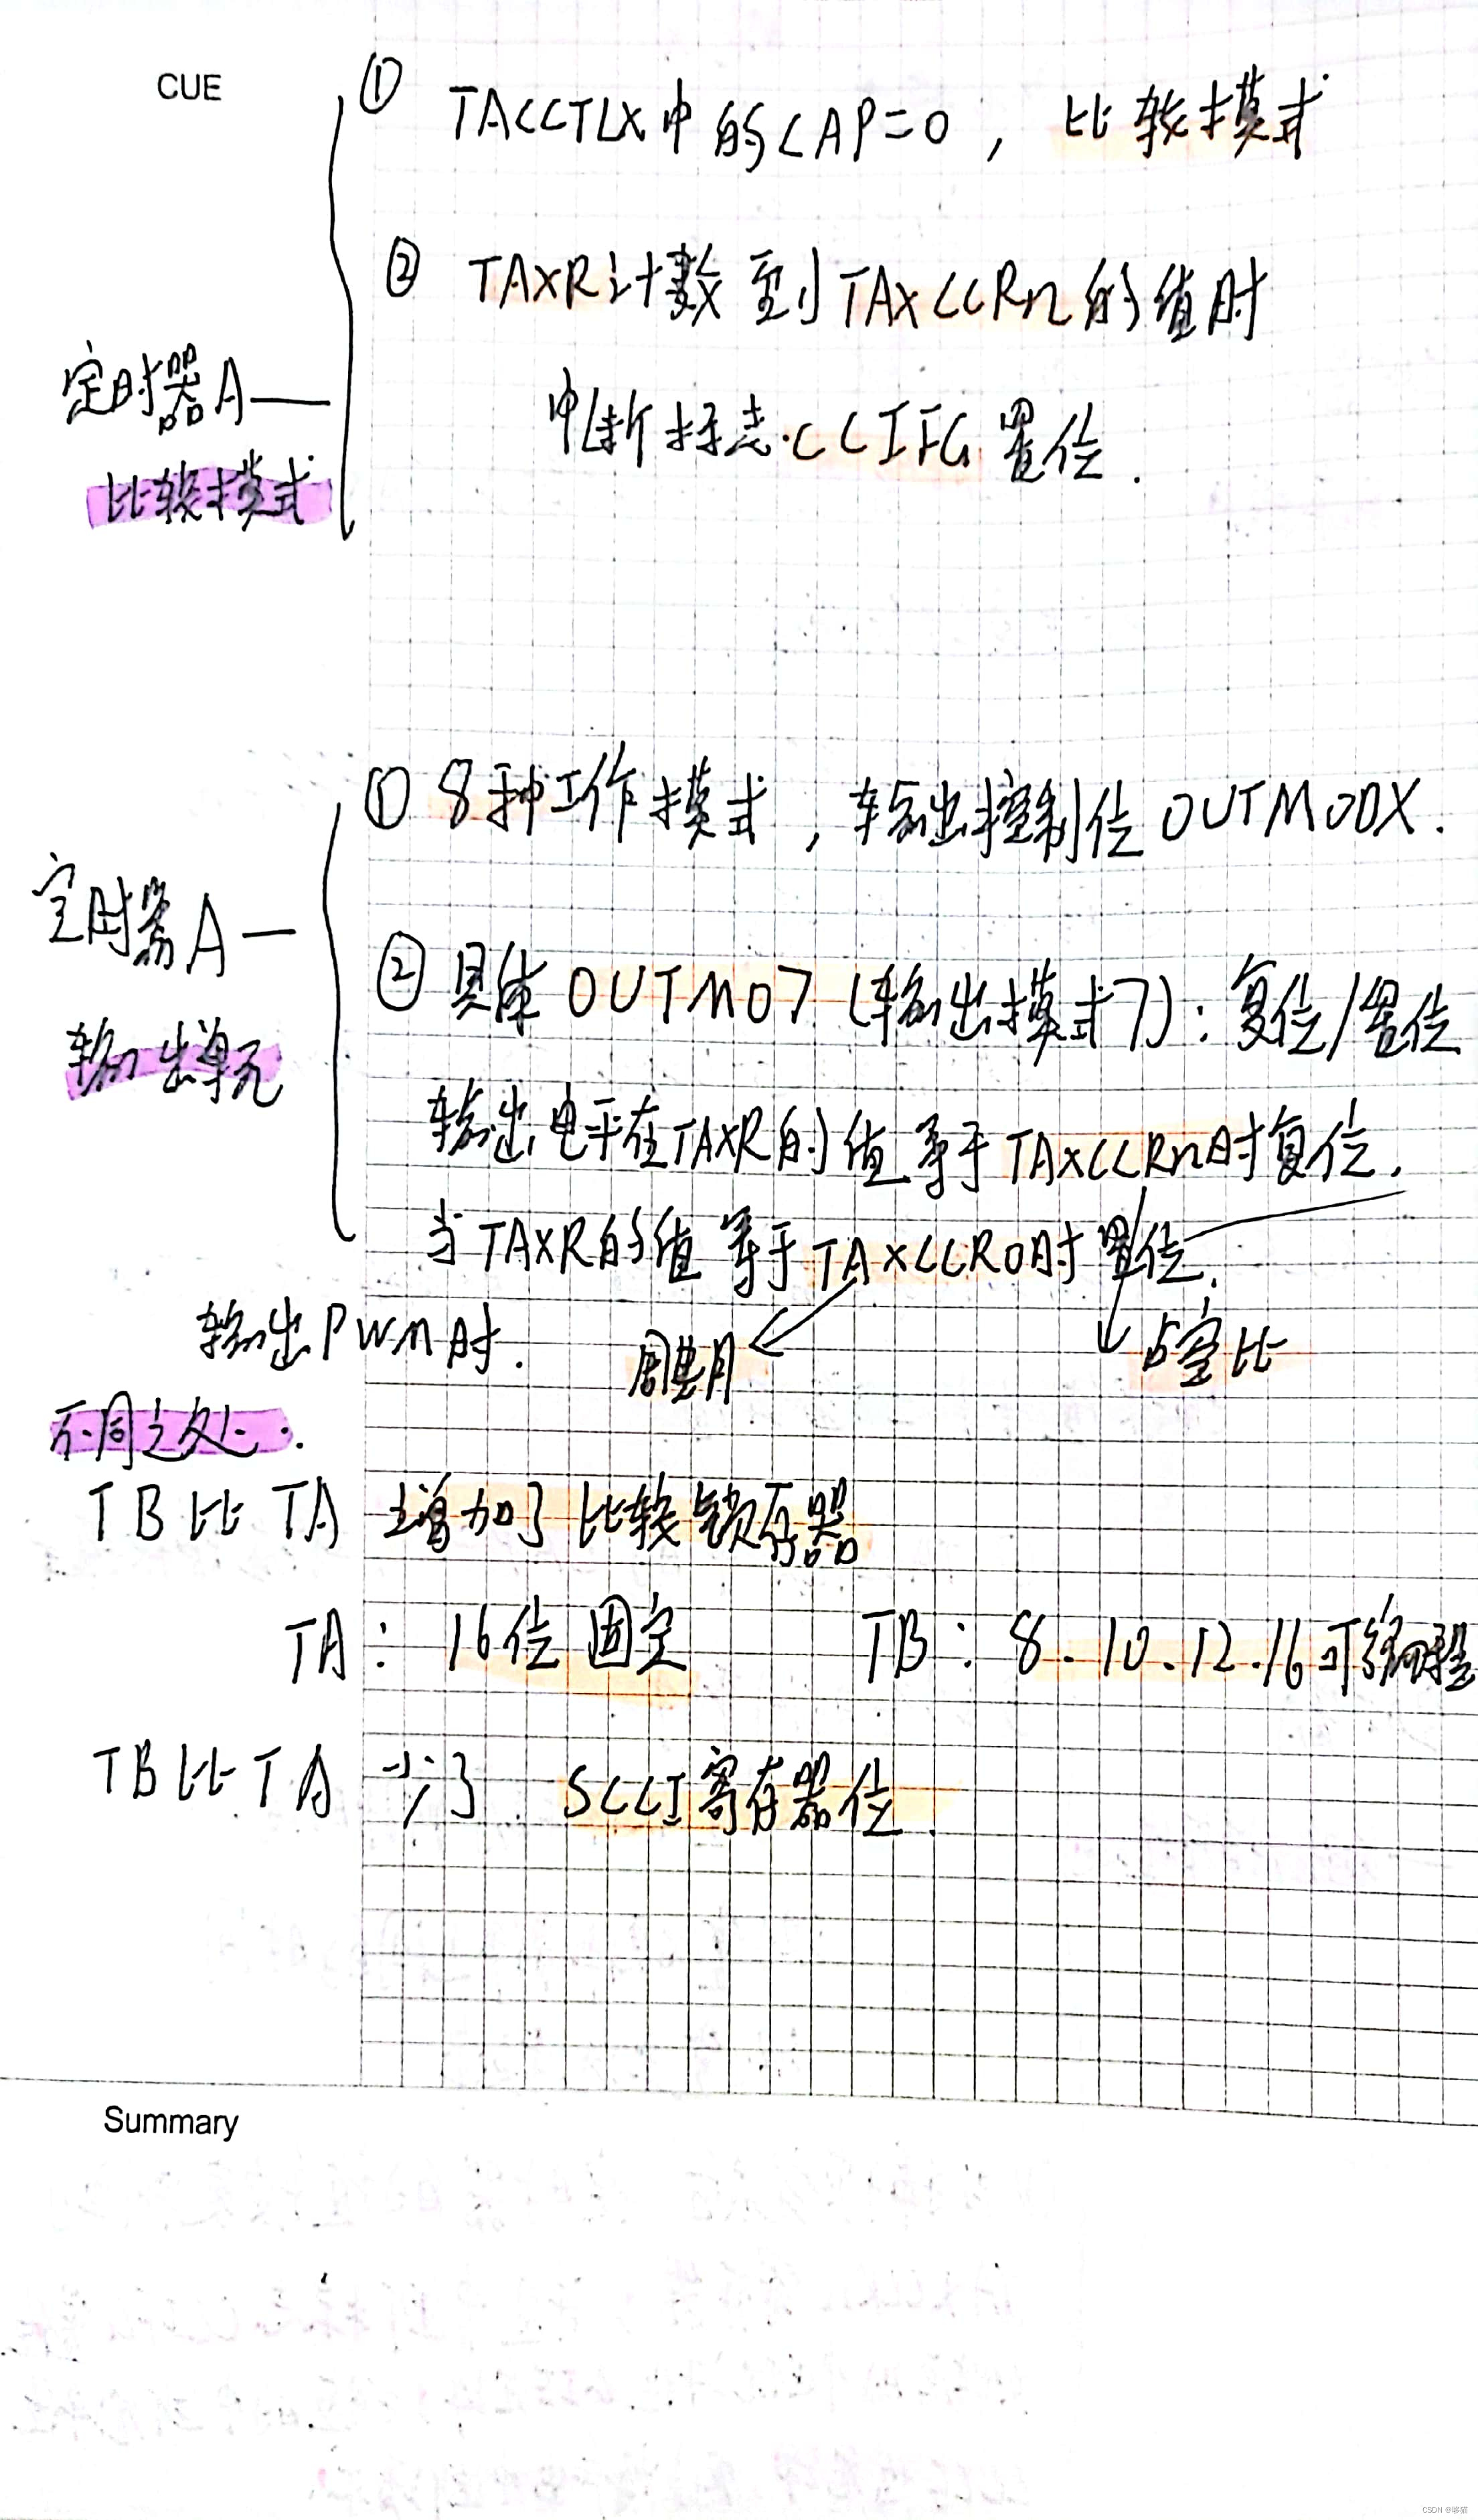 CUE
① TACCTLX中的CAP=0，比较模式
② TAXR计数到TAXCCRn的值时
中断标志CCIFG置位.
定时器A
比较模式
① 8种工作模式，输出控制位OUTMODX.
定时器A
输出单元
② 具体OUTMO7(输出模式7):复位/置位
输出电平在TAXR的值等于TAXCCRn时复位.
当TAXR的值等于TAXCCR0时置位.
输出PWM时. 周期 占空比
不同之处.
TB比TA 增加了比较锁存器
TA: 16位固定 TB: 8.10.12.16可编程
TB比TA 少了 SCCI寄存器位.
Summary
CSDN @哆猫